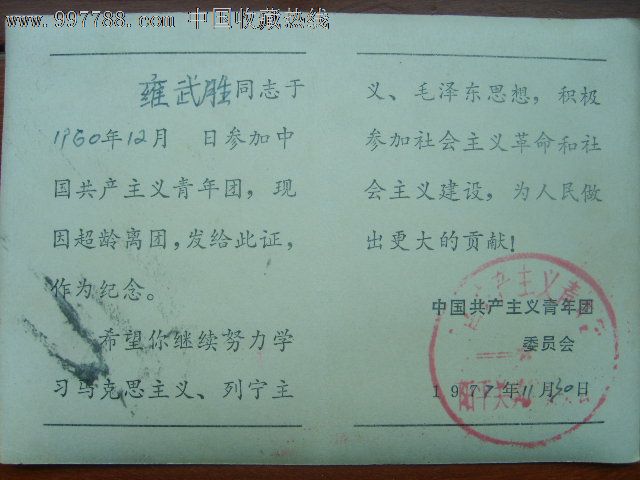 www.997788.com 中国收藏热线
雍武胜同志于
1960年12月 日参加中
国共产主义青年团，现
因超龄离团，发给此证，
作为纪念。
希望你继续努力学
习马克思主义、列宁主
义、毛泽东思想，积极
参加社会主义革命和社
会主义建设，为人民做
出更大的贡献！
中国共产主义青年团
委员会
1977年11月30日